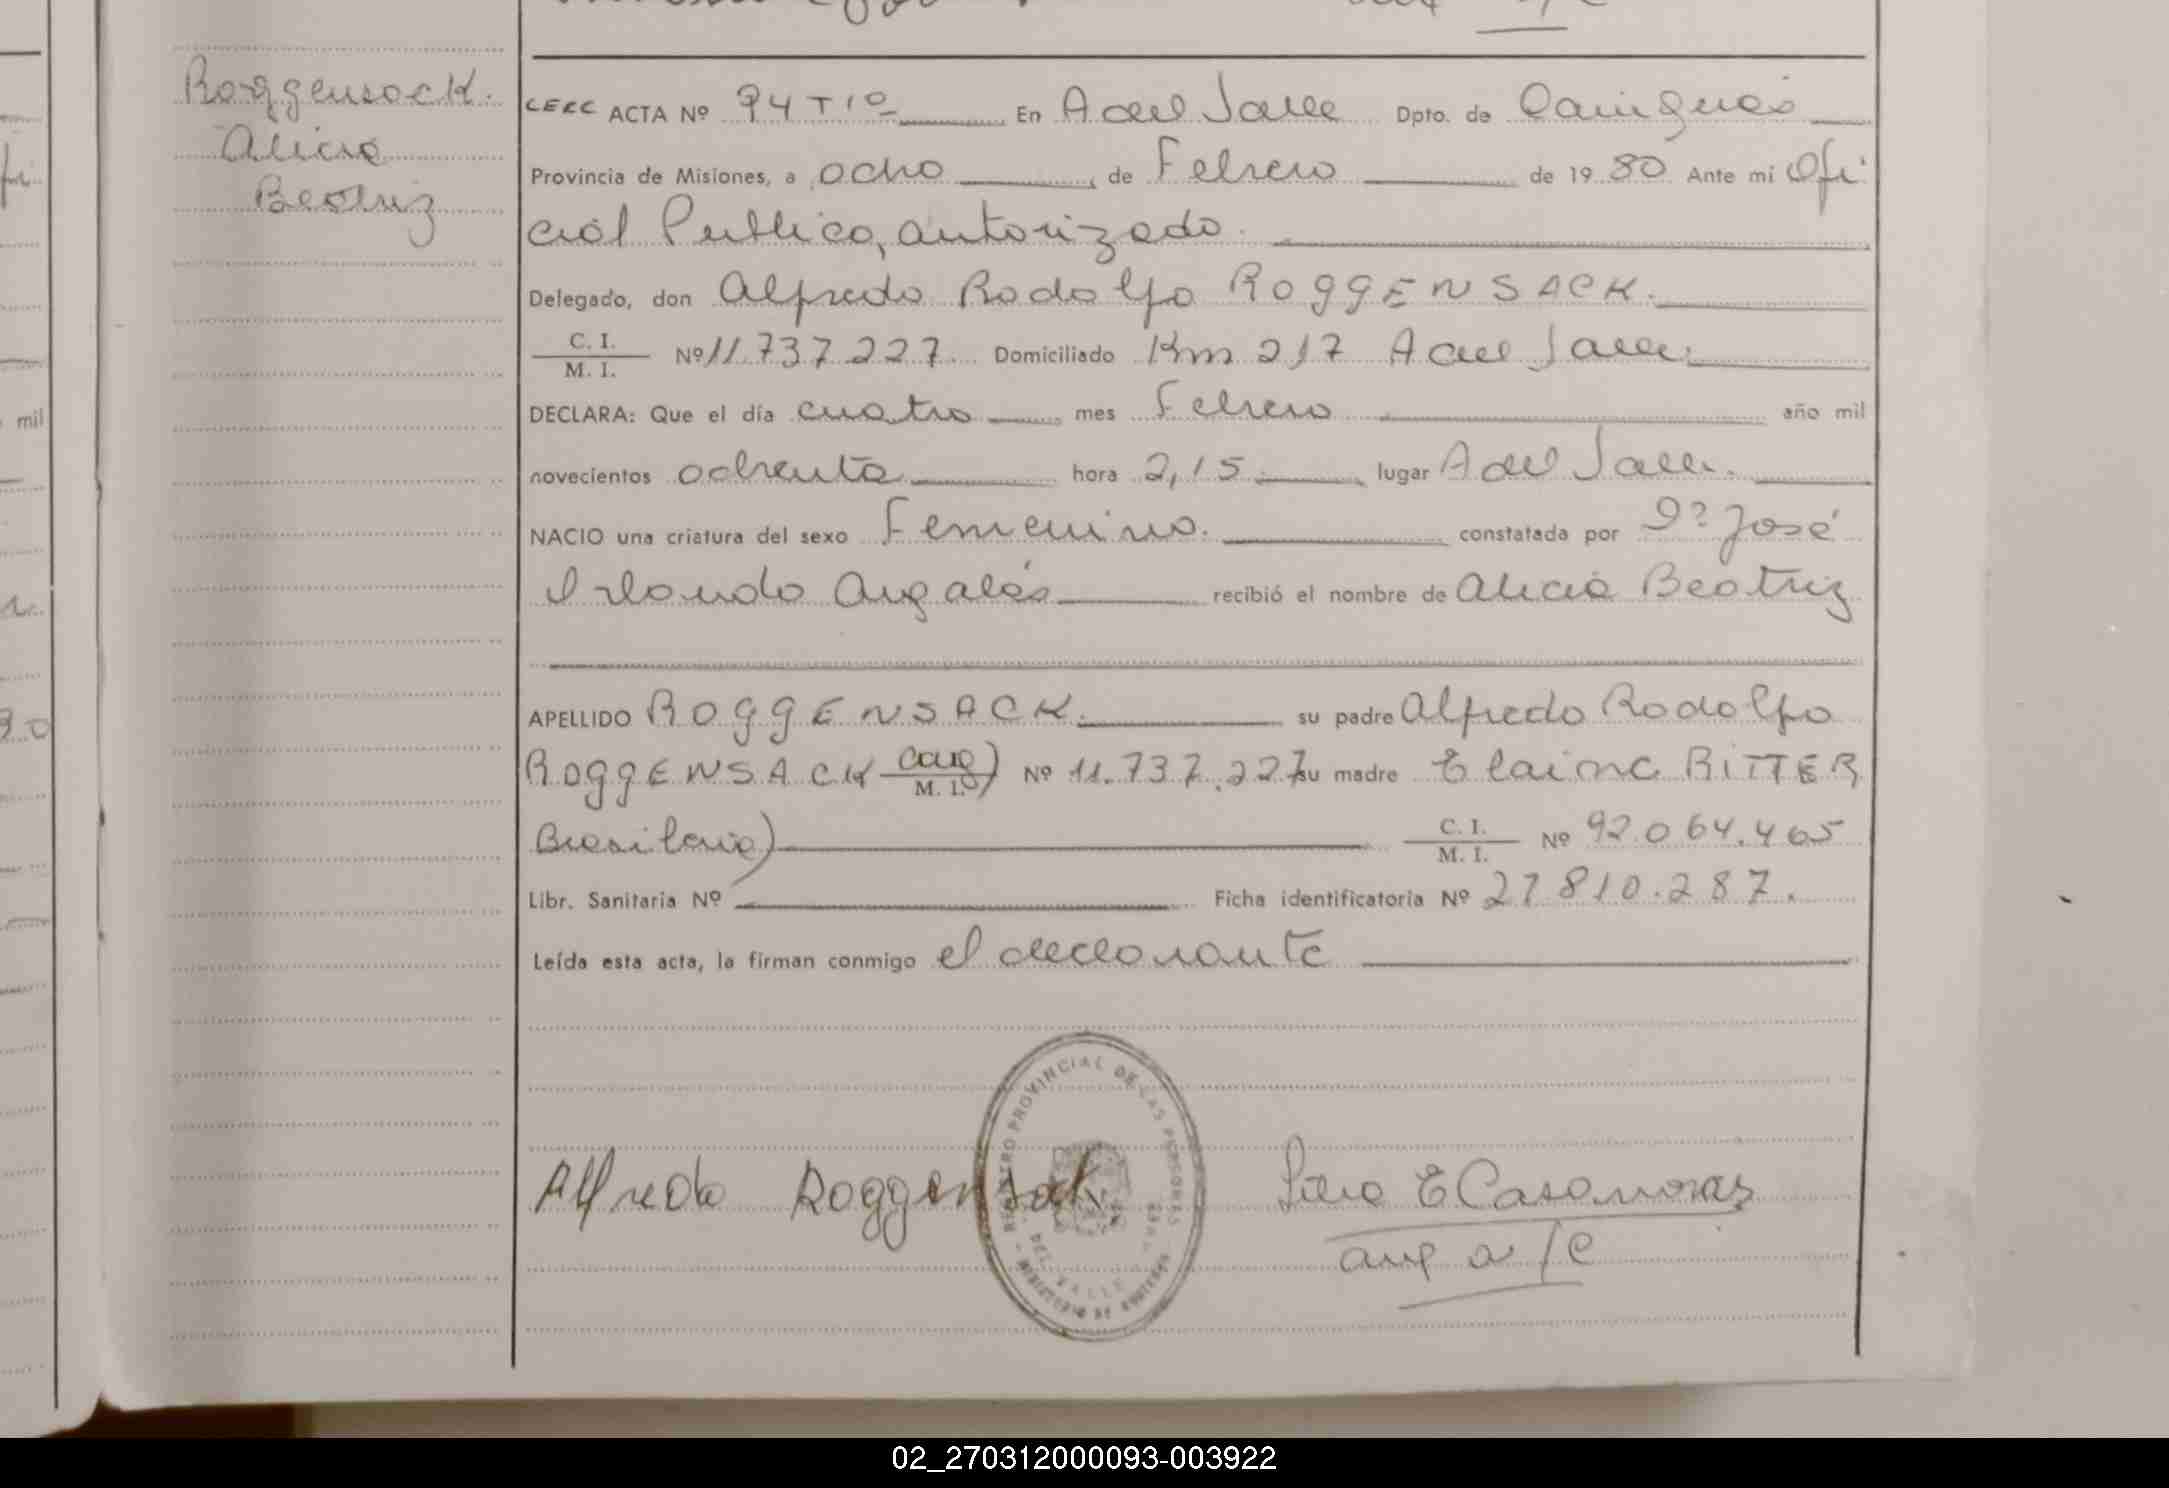 Roggensack.
Alicia
Beatriz
CERC ACTA Nº 94 Tº 1º En A del Valle Dpto. de Cainguás
Provincia de Misiones, a ocho de Febrero de 1980 Ante mi Ofi
cial Publico, autorizado.
Delegado, don Alfredo Rodolfo ROGGENSACK.
C. I.
M. I. Nº 11.737.227. Domiciliado Km 217 A del Valle.
DECLARA: Que el día cuatro mes Febrero año mil
novecientos ochenta hora 2,15 lugar A del Valle.
NACIO una criatura del sexo Femenino. constatada por Dº José
Orlando Angalás recibió el nombre de Alicia Beatriz
APELLIDO ROGGENSACK. su padre Alfredo Rodolfo
ROGGENSACK (arg) M. I. Nº 11.737.227 su madre Elaine RITTER
Brasilera) C. I.
M. I. Nº 92.064.465
Libr. Sanitaria Nº Ficha identificatoria Nº 27.810.287.
Leída esta acta, la firman conmigo el declarante
REGISTRO PROVINCIAL DE LAS PERSONAS
DEL VALLE
Alfredo Roggensak
E Casanovas
a/c
mil
02_270312000093-003922